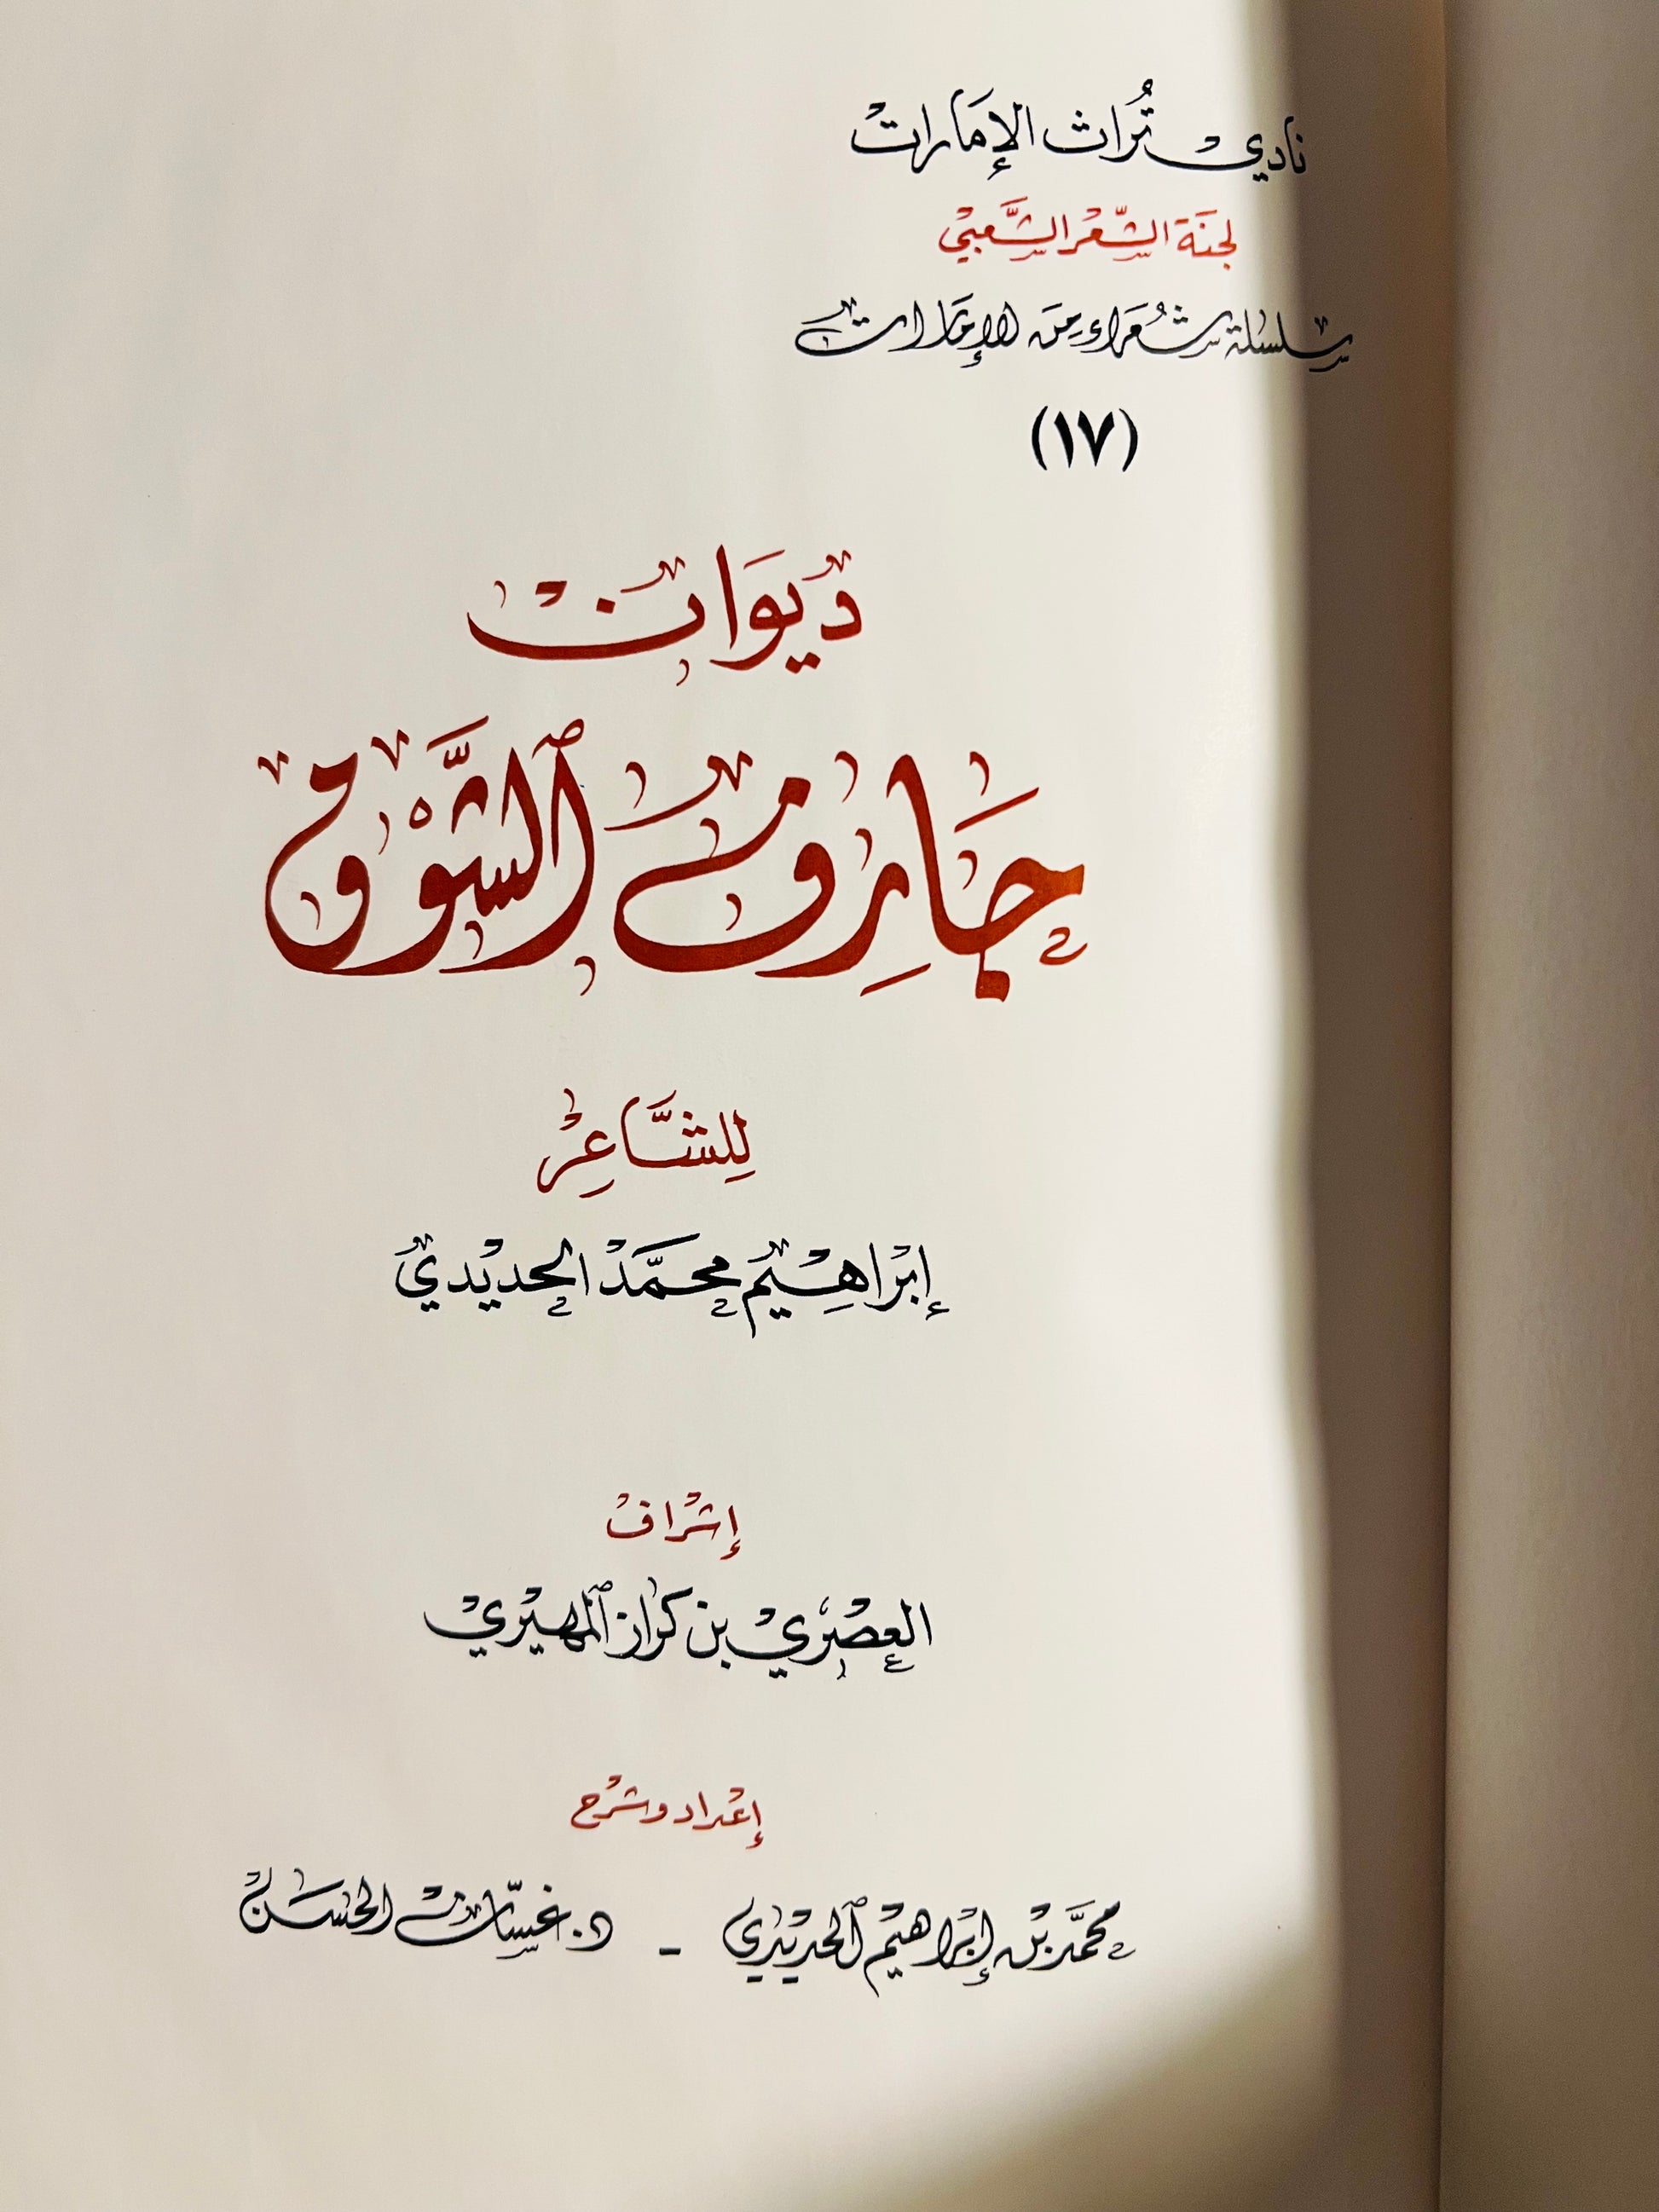 نادي تُراث الإمارات
لجنة الشّعر الشّعبي
سلسلة شُعراء من الإمارات
(١٧)
ديوان
جارِف الشَّوْق
لِلشَّاعِر
إبراهيم محمَّد الحديدي
إشراف
العصري بن كراز المهيري
إعداد وشرح
محمَّد بن إبراهيم الحديدي - د. غسّان الحسن